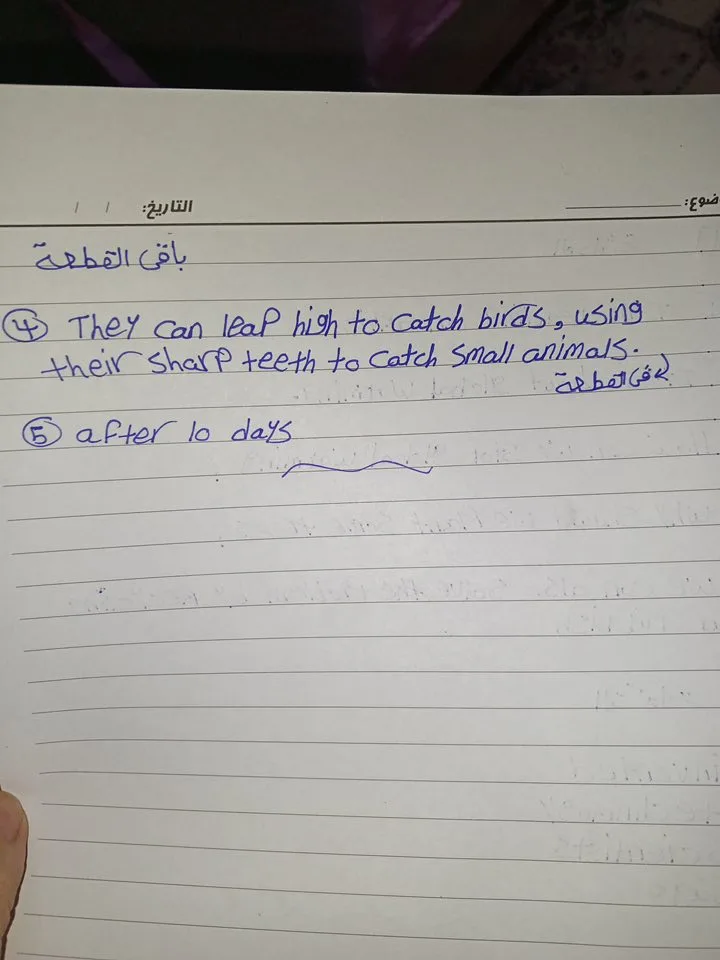 ضوع: التاريخ: / /
باقى القطعة
④ They can leap high to catch birds, using
their sharp teeth to catch small animals.
باقى القطعة
⑤ after 10 days